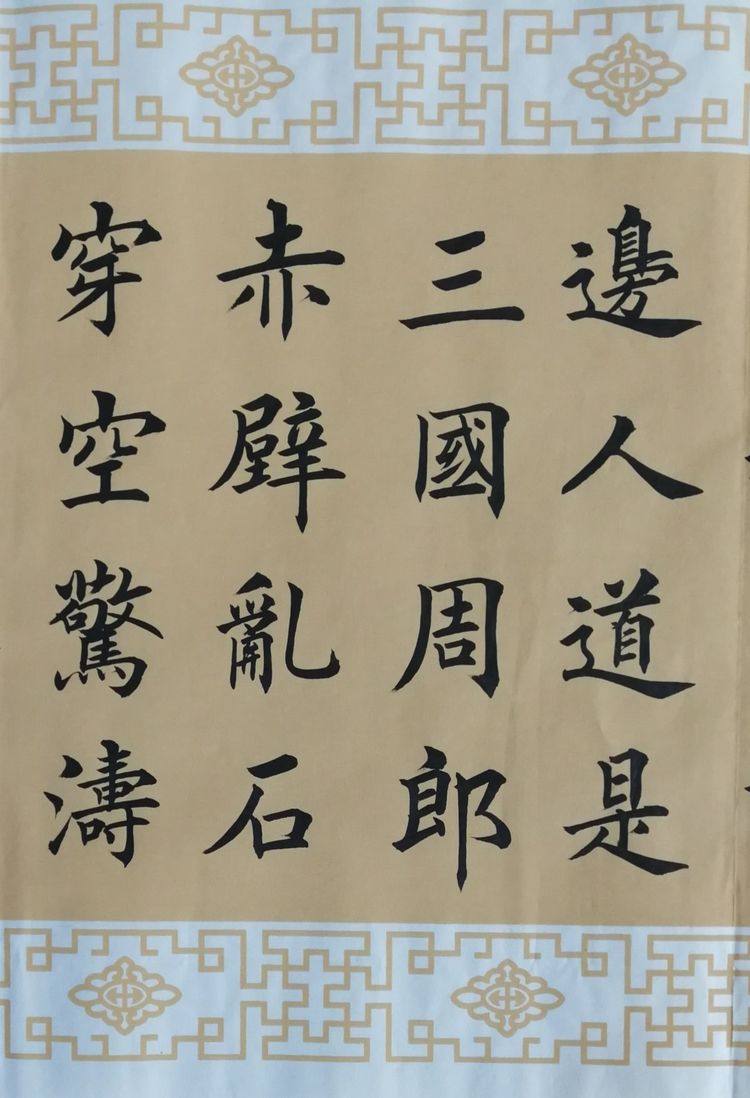 邊人道是
三國周郎
赤壁亂石
穿空驚濤